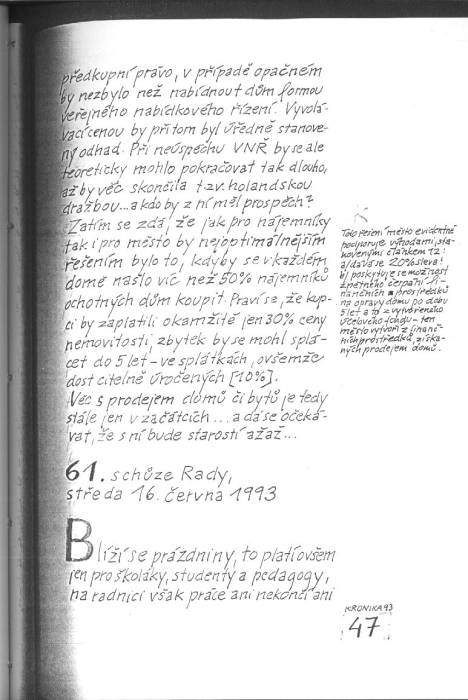 předkupní právo, v případě opačném
by nezbylo než nabídnout dům formou
veřejného nabídkového řízení. Vyvolá-
vací cenou by přitom byl úředně stanove-
ný odhad. Při neúspěchu VNŘ by se ale
teoreticky mohlo pokračovat tak dlouho,
až by věc skončila t.zv. holandskou
dražbou...a kdo by z ní měl prospěch?
Zatím se zdá, že jak pro nájemníky
tak i pro město by nejoptimálnějším
řešením bylo to, kdyby se v každém
domě našlo víc než 50% nájemníků
ochotných dům koupit. Praví se, že kup-
ci by zaplatili okamžitě jen 30% ceny
nemovitosti, zbytek by se mohl splá-
cet do 5 let - ve splátkách, ovšemže
dost citelně úročených [10%].
Věc s prodejem domů či bytů je tedy
stále jen v začátcích ... a dá se očeká-
vat, že s ní bude starostí až až...
Toto řešení město evidentně
podporuje výhodami, sta-
novenými článkem 12:
a/ dává se 20% sleva!
b/ poskytuje se možnost
zpětného čerpání fi-
nančních prostředků
na opravy domu po dobu
5 let a to z vytvořeného
účelového fondu - ten
město vytvoří z finanč-
ních prostředků, získa-
ných prodejem domů.
61. schůze Rady,
středa 16. června 1993
Blíží se prázdniny, to platí ovšem
jen pro školáky, studenty a pedagogy,
na radnici však práce ani nekončí ani
KRONIKA 93
47